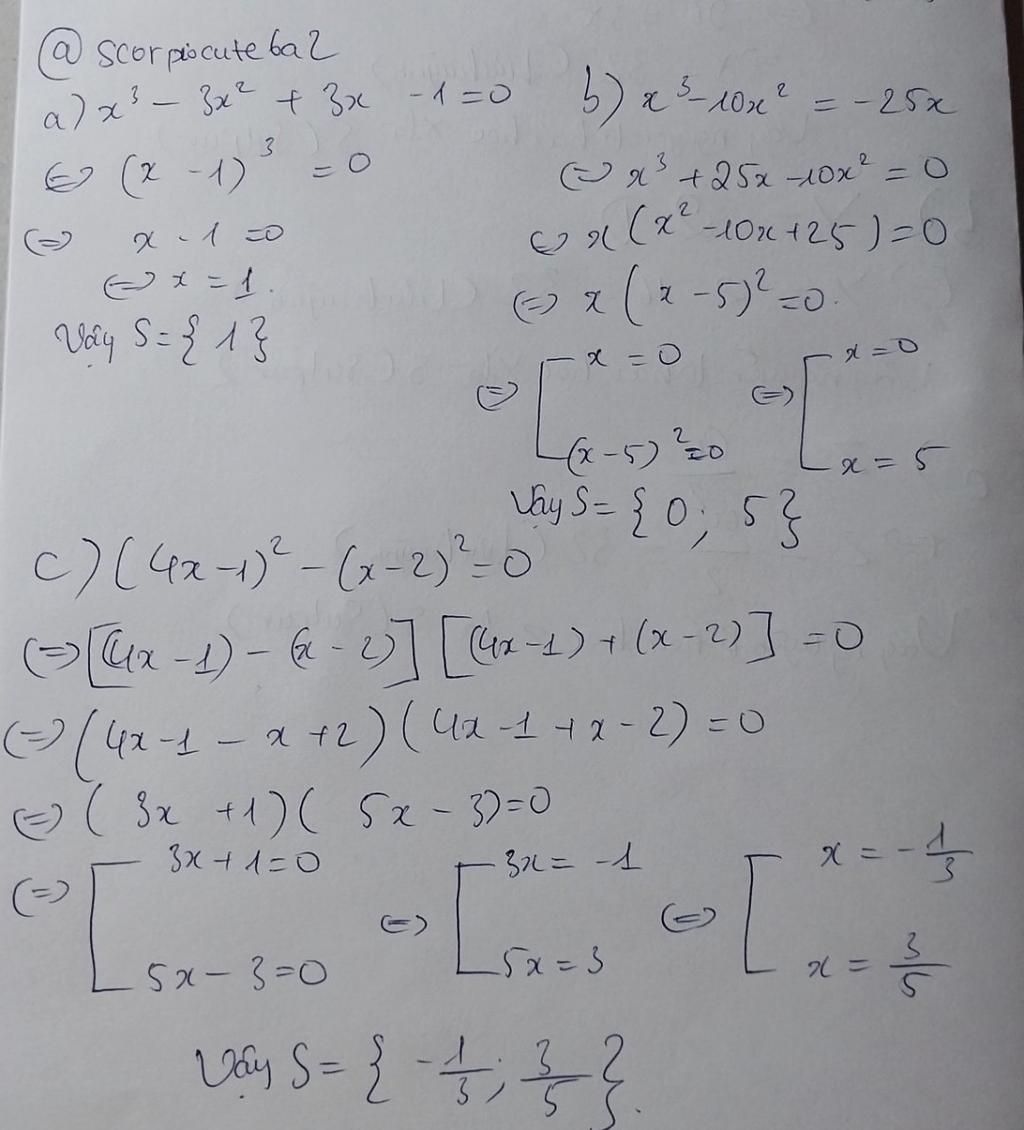 @ scorpiocute6a2
a) x³ - 3x² + 3x - 1 = 0
⇔ (x - 1)³ = 0
⇔ x - 1 = 0
⇔ x = 1.
Vậy S = { 1 }
b) x³ - 10x² = -25x
⇔ x³ + 25x - 10x² = 0
⇔ x (x² - 10x + 25) = 0
⇔ x (x - 5)² = 0.
⇔ [ x = 0 ⇔ [ x = 0
(x - 5)² = 0 x = 5
Vậy S = { 0; 5 }
c) (4x - 1)² - (x - 2)² = 0
⇔ [(4x - 1) - (x - 2)] [(4x - 1) + (x - 2)] = 0
⇔ (4x - 1 - x + 2) (4x - 1 + x - 2) = 0
⇔ (3x + 1) (5x - 3) = 0
⇔ [ 3x + 1 = 0 ⇔ [ 3x = -1 ⇔ [ x = -1/3
5x - 3 = 0 5x = 3 x = 3/5
Vậy S = { -1/3; 3/5 }.